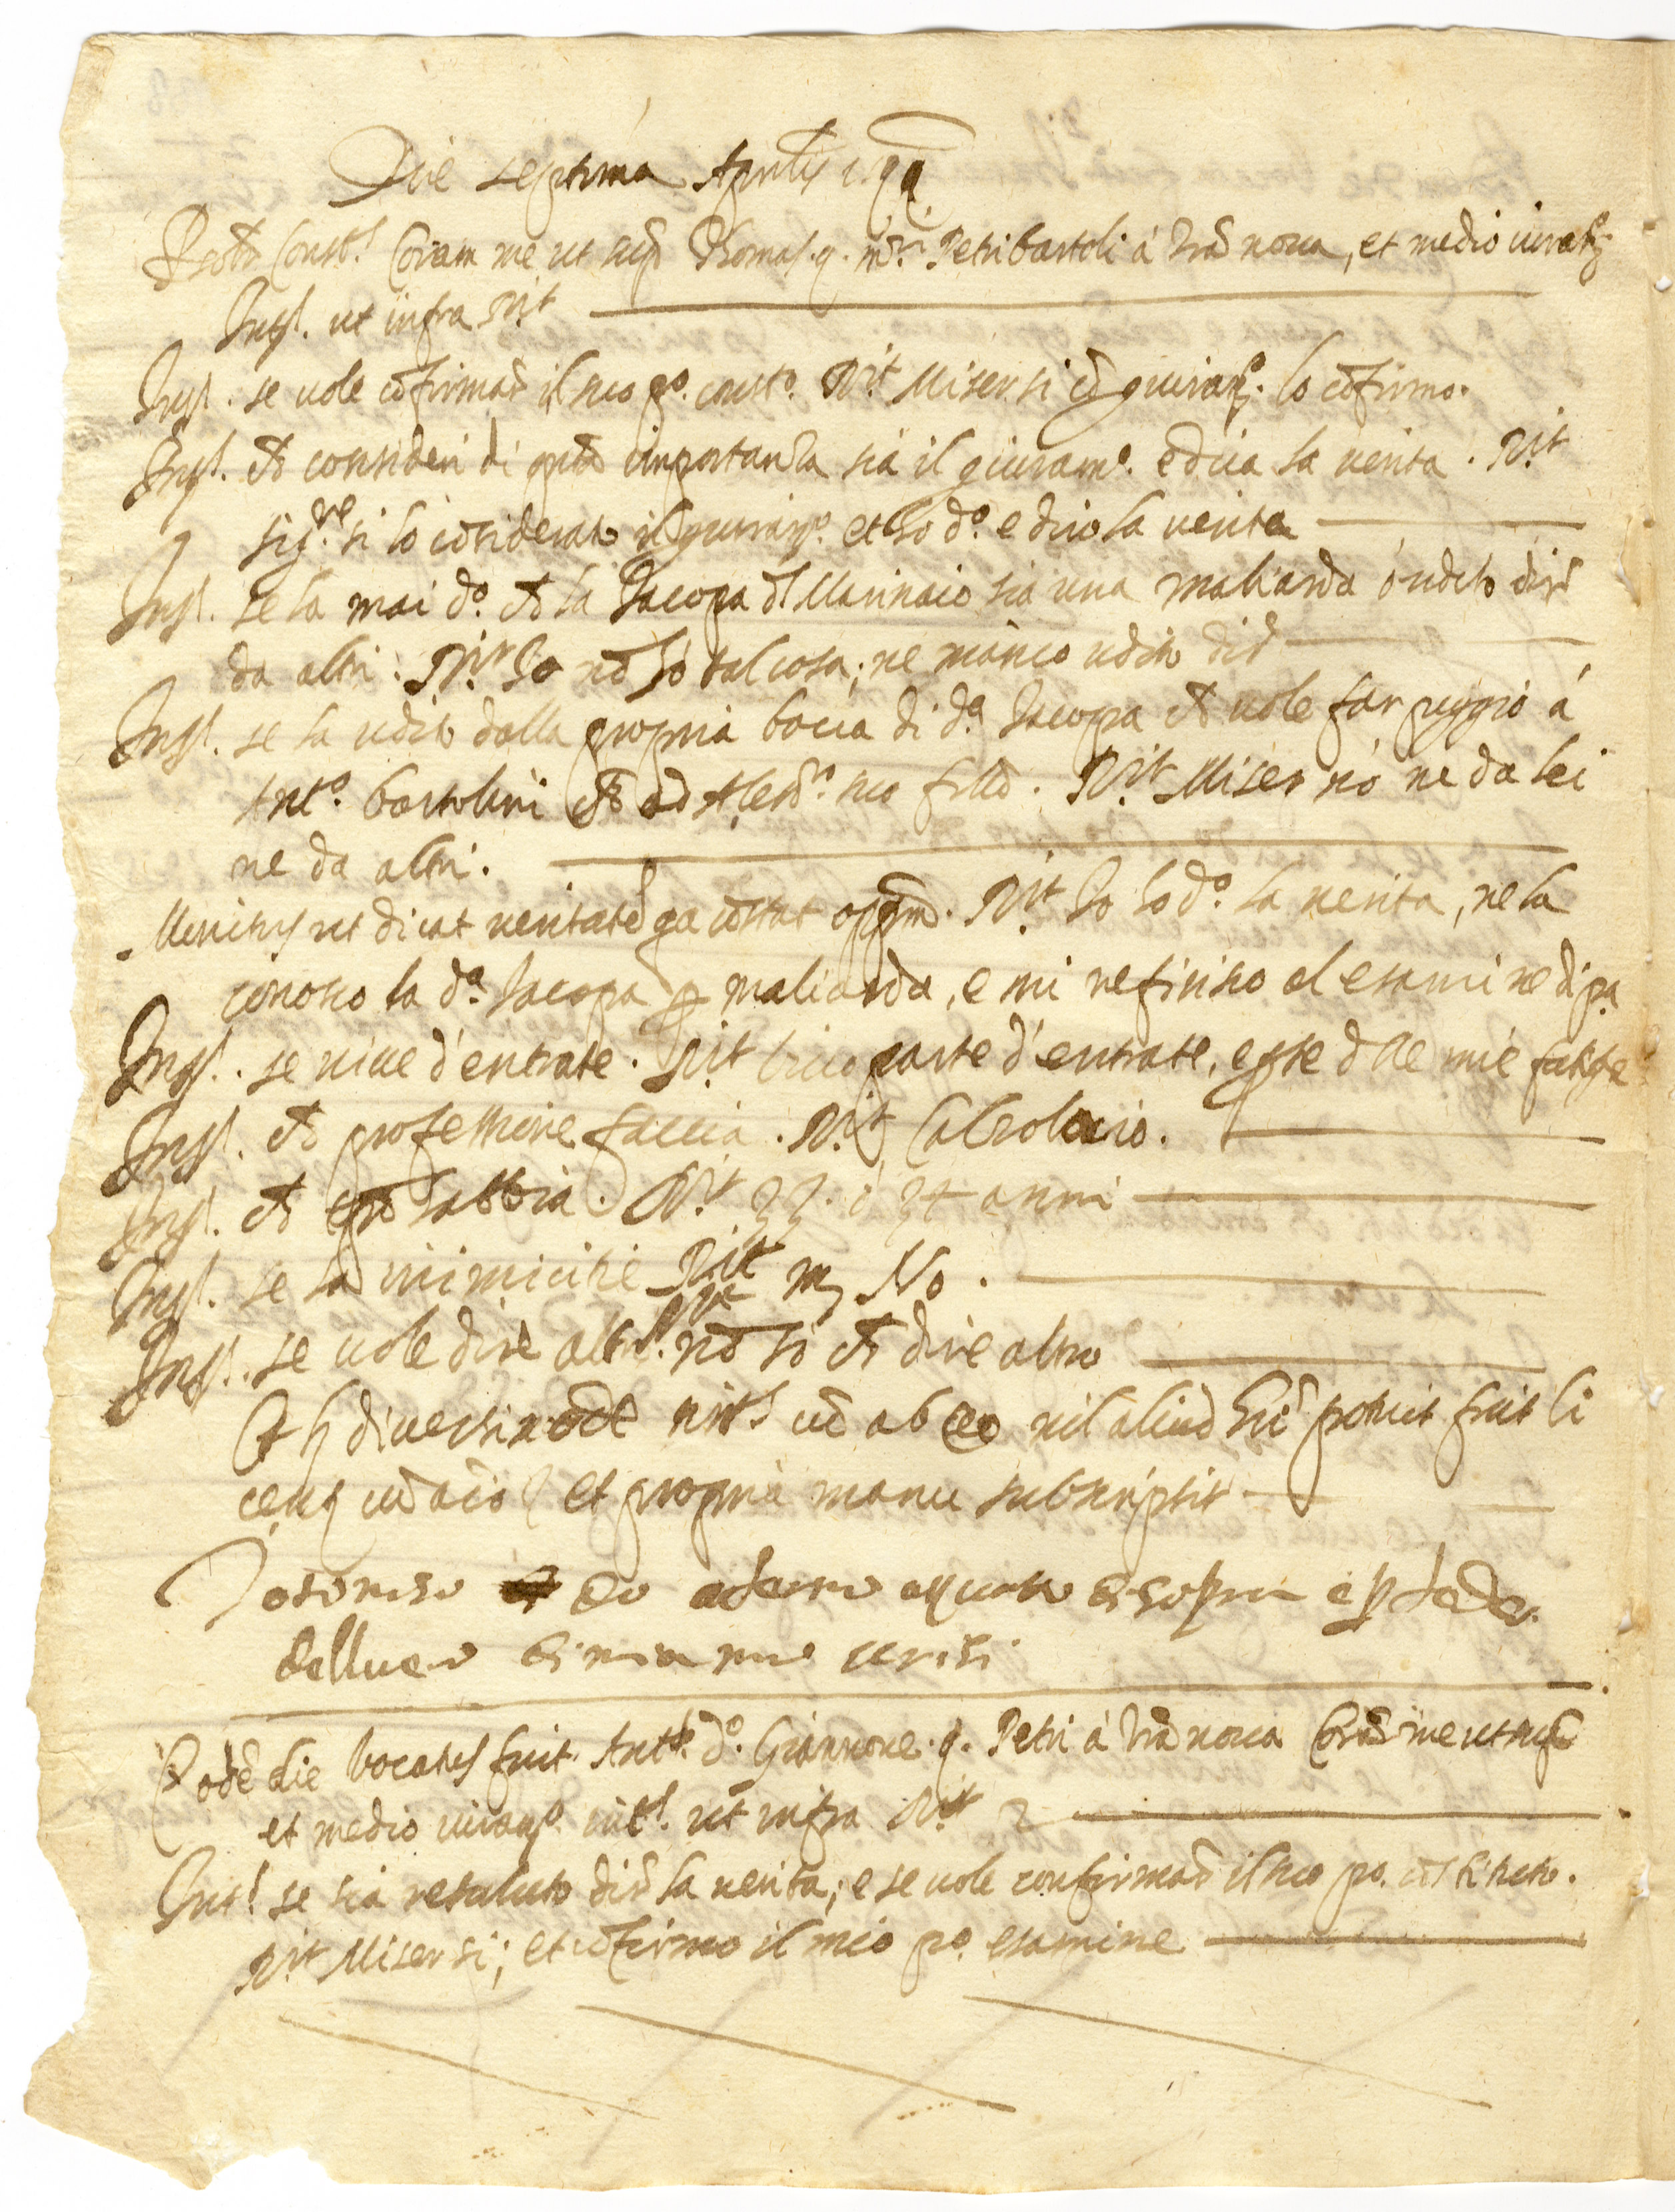 Die septima Aprilis
const.s Coram me ut sup.a Thomas q. m.ri Petri bartoli à Trã noua, et medio iuram.to
Int.s ut infra R.it
Int.s se uole cõfirmar il suo p.o const.o R.it Miser si cõ giuram.to lo cõfirmo.
Int.s che consideri di q.ta importanza sia il giuram.o e dica la uerita. R.it
sig.re si lo cõsiderato il giuram.o et ho d.o e dico la uerita
Int.s se ha mai d.o che la Jacopa del Marinaio sia una maliarda ò udito dire
da altri. R.it Io nõ sò tal cosa; ne manco udito dir
Int.s se ha udito dalla propria bocca di d.a Jacopa che uole far peggio à
Ant.o bartolini che ad Aless.o suo fillo. R.it Miser nò ne da lei
ne da altri.
Monitus ut dicat ueritatẽ qa cõstat opp.m R.it Io ho d.o la uerita, ne la
conosco la d.a Jacopa p maliarda, e mi referisco al esamine di p.a
Int.s se uiue d'entrate. R.it Viuo parte d'entrate, e pte delle mie fatighe
Int.s che professione faccia. R.it Calzolaio.
Int.s che età habbia. R.it 33. ò 34 anni
Int.s se ha inimicitie R.it m No.
Int.s se uole dire altro R.it nõ sò che dire altro
Et diuersimode int.s cũ ab eo nil aliud potuit fuit li
cent.s et propria manu subscripsit
Io tomaso afermo quanto di sopra e p fede
dell uero di mia mano scrisi
Eodẽ die Vocatus fuit Ant.s d.o Giannone q. Petri à Trã noua Corã me ut sup.a
et medio iuram.o int.s ut infra R.it
Int.s se sia resoluto dir la uerita; e se uole confirmar il suo p.o cõstituto.
R.it Miser si; et cõfirmo il mio p.o esamine